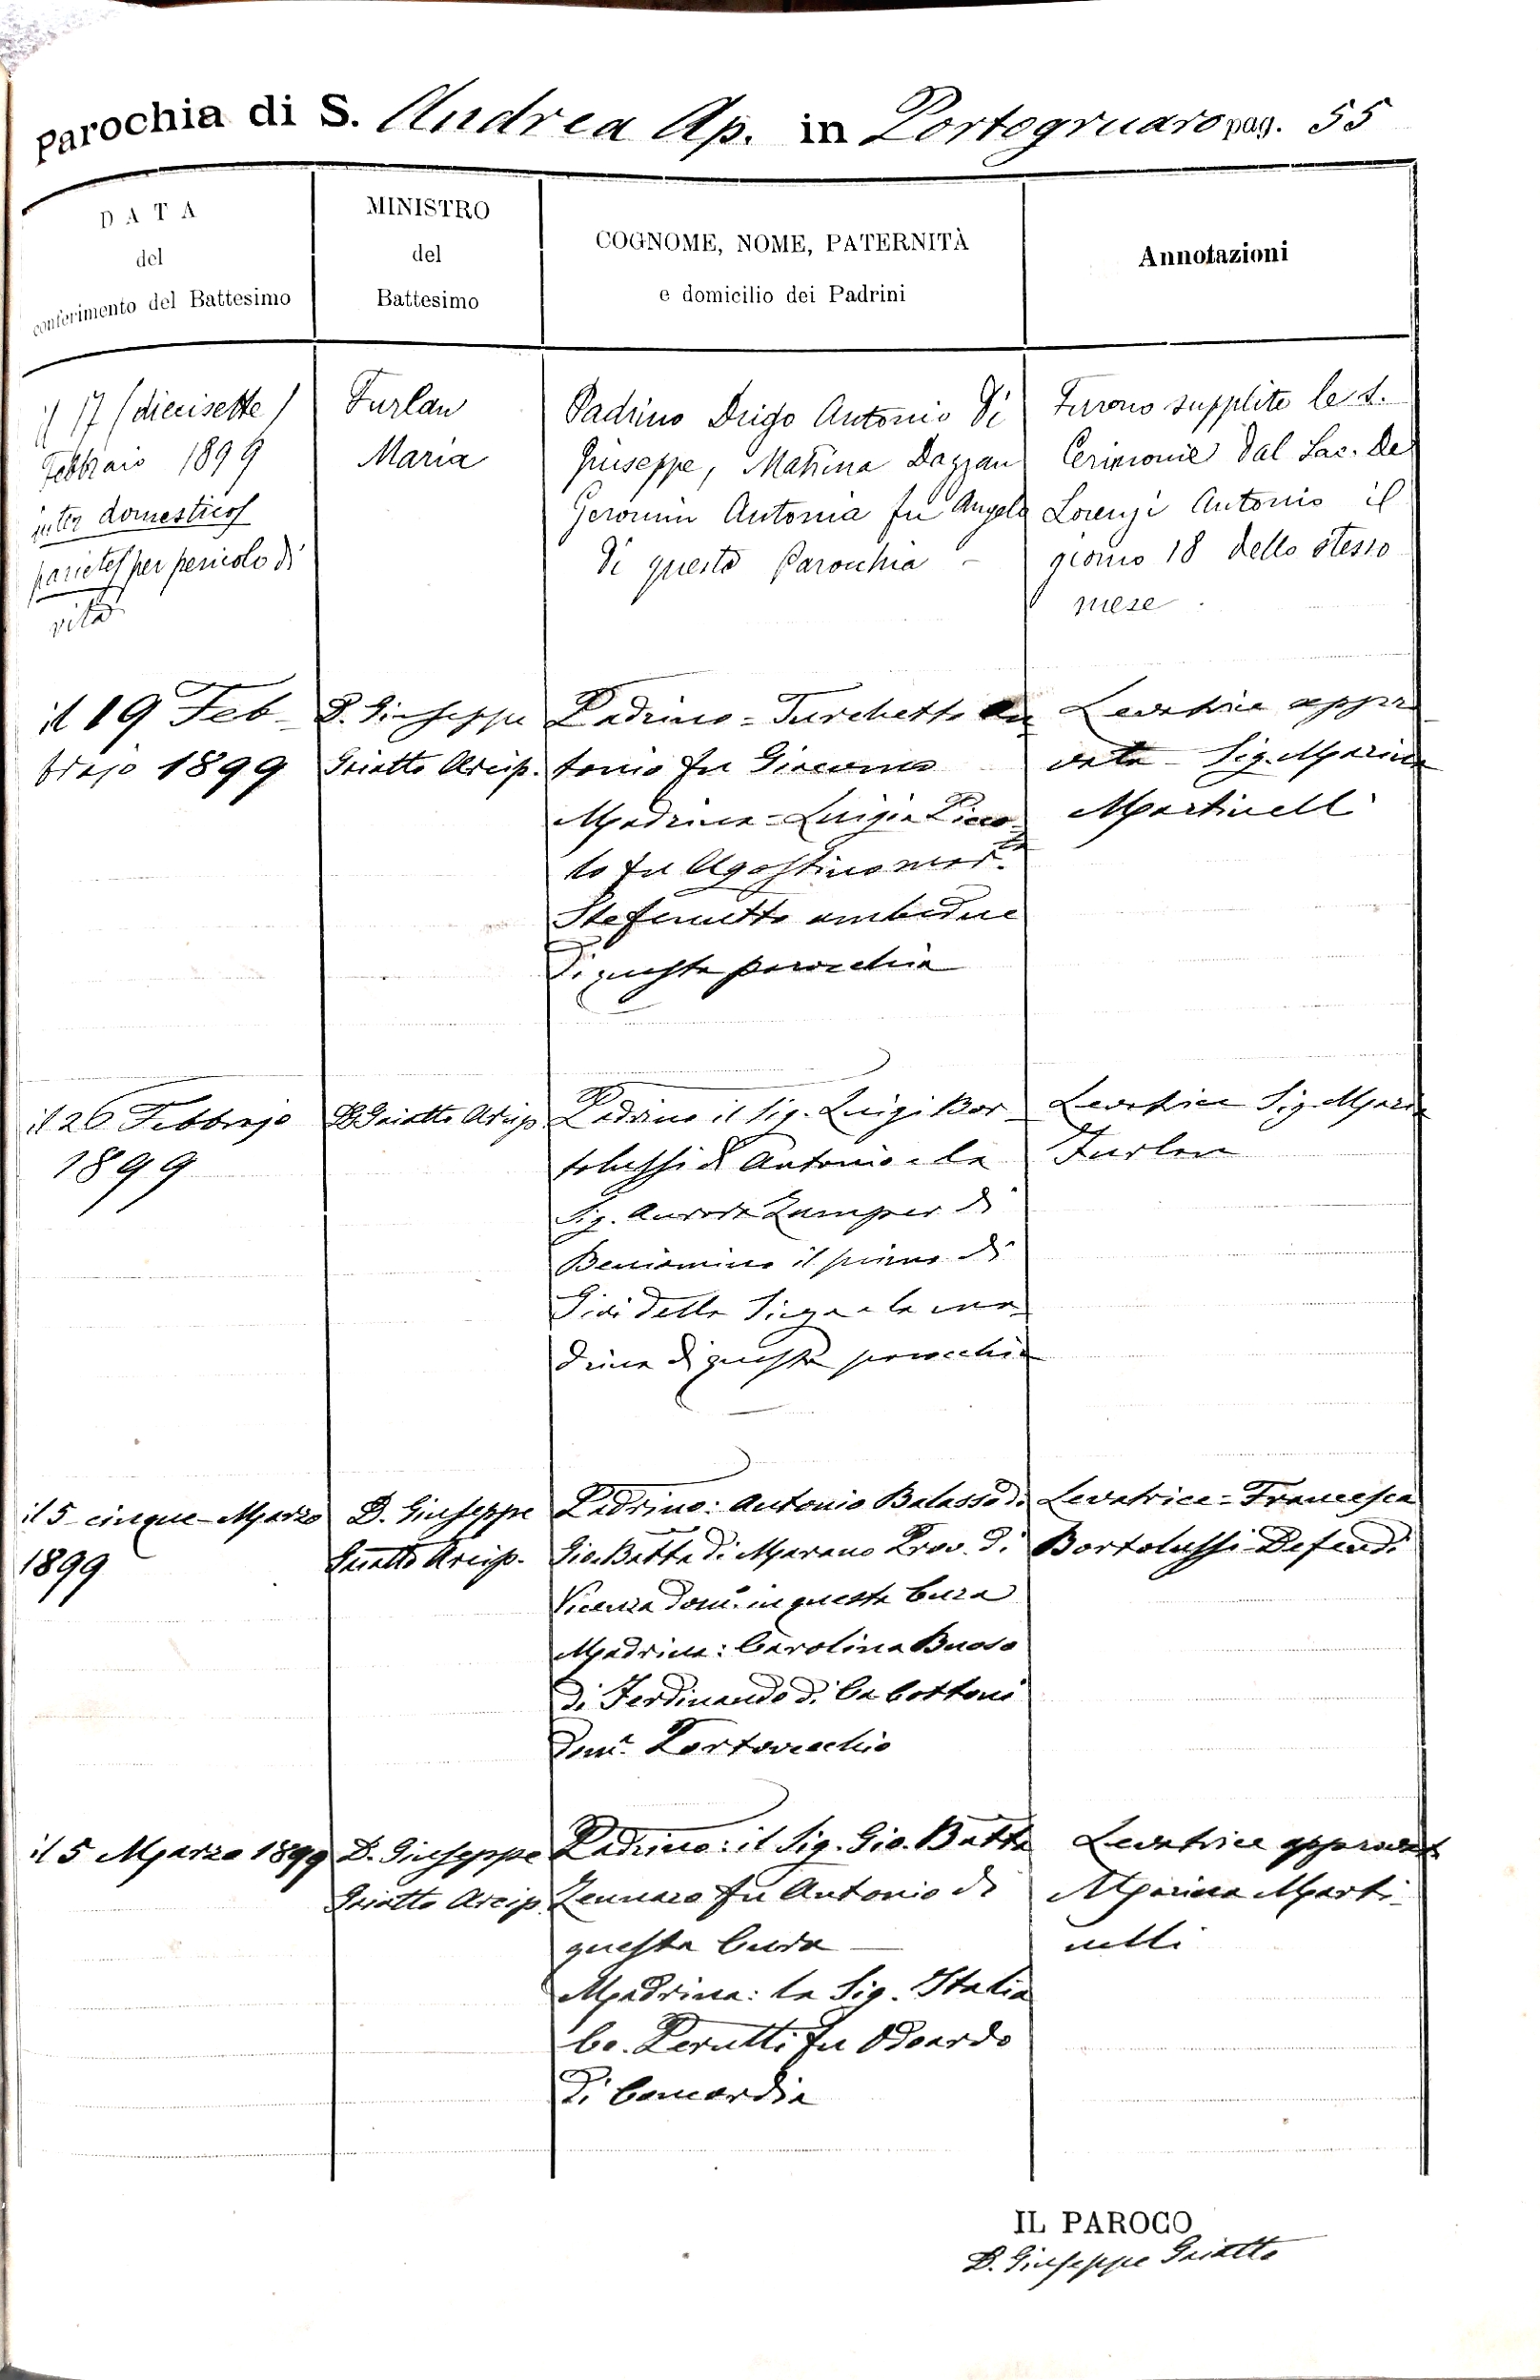 Parochia di S. Andrea Ap. in Portogruaro pag. 55
DATA
del
conferimento del Battesimo
MINISTRO
del
Battesimo
COGNOME, NOME, PATERNITÀ
e domicilio dei Padrini
Annotazioni
il 17 (diecisette)
Febbraio 1899
inter domesticos
parietes per pericolo di
vita
Furlan
Maria
Padrino Drigo Antonio di
Giuseppe, Matrina Dazzan
Geromin Antonia fu Angelo
di questa Parocchia -
Furono supplite le S.
Cerimonie dal Sac. De
Lorenzi Antonio il
giorno 18 dello stesso
mese.
il 19 Feb-
brajo 1899
D. Giuseppe
Griatto Arcip.
Padrino = Turchetto An
tonio fu Giacomo
Madrina = Luigia Picco-
lo fu Agostino mar.ta
Stefanetto ambedue
di questa parocchia
Levatrice appro-
vata - Sig. Marina
Martinelli
il 26 Febbrajo
1899
D. Griatto Arcip
Padrino il Sig. Luigi Bor-
tolussi di Antonio e la
Sig. Aurora Zamper di
Beniamino il primo di
Giai della e la ma-
drina di questa parocchia
Levatrice Sig. Maria
Furlan
il 5 cinque Marzo
1899
D. Giuseppe
Griatto Arcip.
Padrino: Antonio Balasso di
Gio. Batta di Marano Prov. di
Vicenza dom. in questa Cura
Madrina: Carolina Buoso
di Ferdinando di Ca Cottoni
Portovecchio
Levatrice = Francesca
Bortolussi Defendi
il 5 Marzo 1899
D. Giuseppe
Griatto Arcip.
Padrino: il Sig. Gio. Batta
Zennaro fu Antonio di
questa Cura —
Madrina: la Sig. Italia
Co. Perulli fu Odoardo
di Concordia
Levatrice approvata
Marina Marti-
nelli
IL PAROCO
D. Giuseppe Griatto